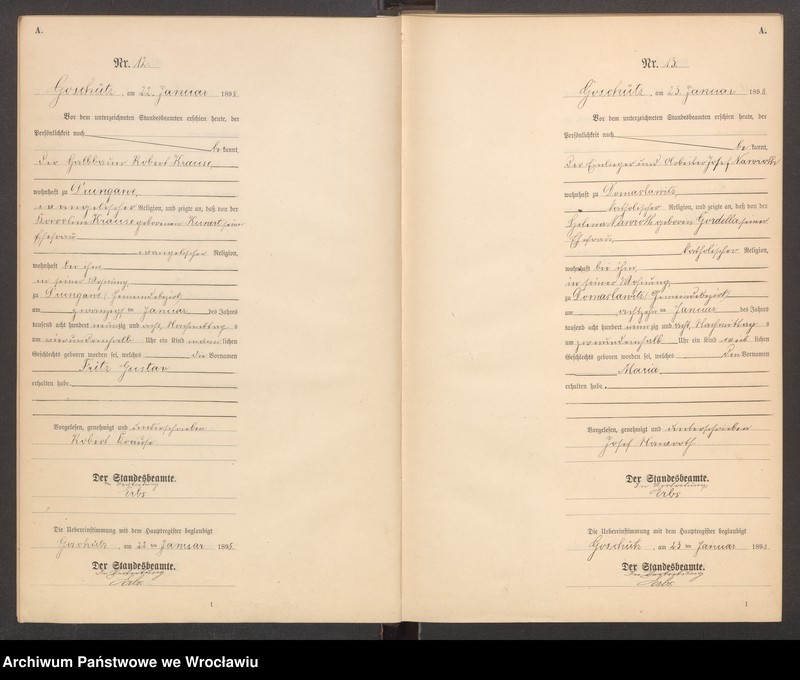 A.
Nr. 12.
Goschütz, am 22. Januar 1898
Vor dem unterzeichneten Standesbeamten erschien heute, der
Persönlichkeit nach
be kannt,
der Halbbauer Robert Krause,
wohnhaft zu Drungawe,
evangelischer Religion, und zeigte an, daß von der
Karoline Krause geborenen Kunert, seiner
Ehefrau
evangelischer Religion,
wohnhaft bei ihm,
in seiner Wohnung,
zu Drungawe, Gemeindebezirk
am zwanzigsten Januar des Jahres
tausend acht hundert neunzig und acht, Nachmittag s
um vierundeinhalb Uhr ein Kind männ lichen
Geschlechts geboren worden sei, welches die Vornamen
Fritz Gustav
erhalten habe.
Vorgelesen, genehmigt und unterschrieben
Robert Krause
Der Standesbeamte.
In Vertretung
Erbs
Die Uebereinstimmung mit dem Hauptregister beglaubigt
Goschütz, am 22 ten Januar 1898
Der Standesbeamte.
In Vertretung
Erbs
1
A.
Nr. 13.
Goschütz, am 23. Januar 1898
Vor dem unterzeichneten Standesbeamten erschien heute, der
Persönlichkeit nach
be kannt,
der Einlieger und Arbeiter Josef Nawroth
wohnhaft zu Domaslawitz,
katholischer Religion, und zeigte an, daß von der
Helena Nawroth geboren Gordella, seiner
Ehefrau,
katholischer Religion,
wohnhaft bei ihm,
in seiner Wohnung
zu Domaslawitz, Gemeindebezirk
am achtzehnten Januar des Jahres
tausend acht hundert neun zig und acht, Nachmittag s
um Uhr ein Kind weib lichen
Geschlechts geboren worden sei, welches den Vornamen
Maria
erhalten habe.
Vorgelesen, genehmigt und unterschrieben
Josef Nawroth
Der Standesbeamte.
In Vertretung
Erbs
Die Uebereinstimmung mit dem Hauptregister beglaubigt
Goschütz, am 23 ten Januar 1898
Der Standesbeamte.
In Vertretung
Erbs
1
Archiwum Państwowe we Wrocławiu